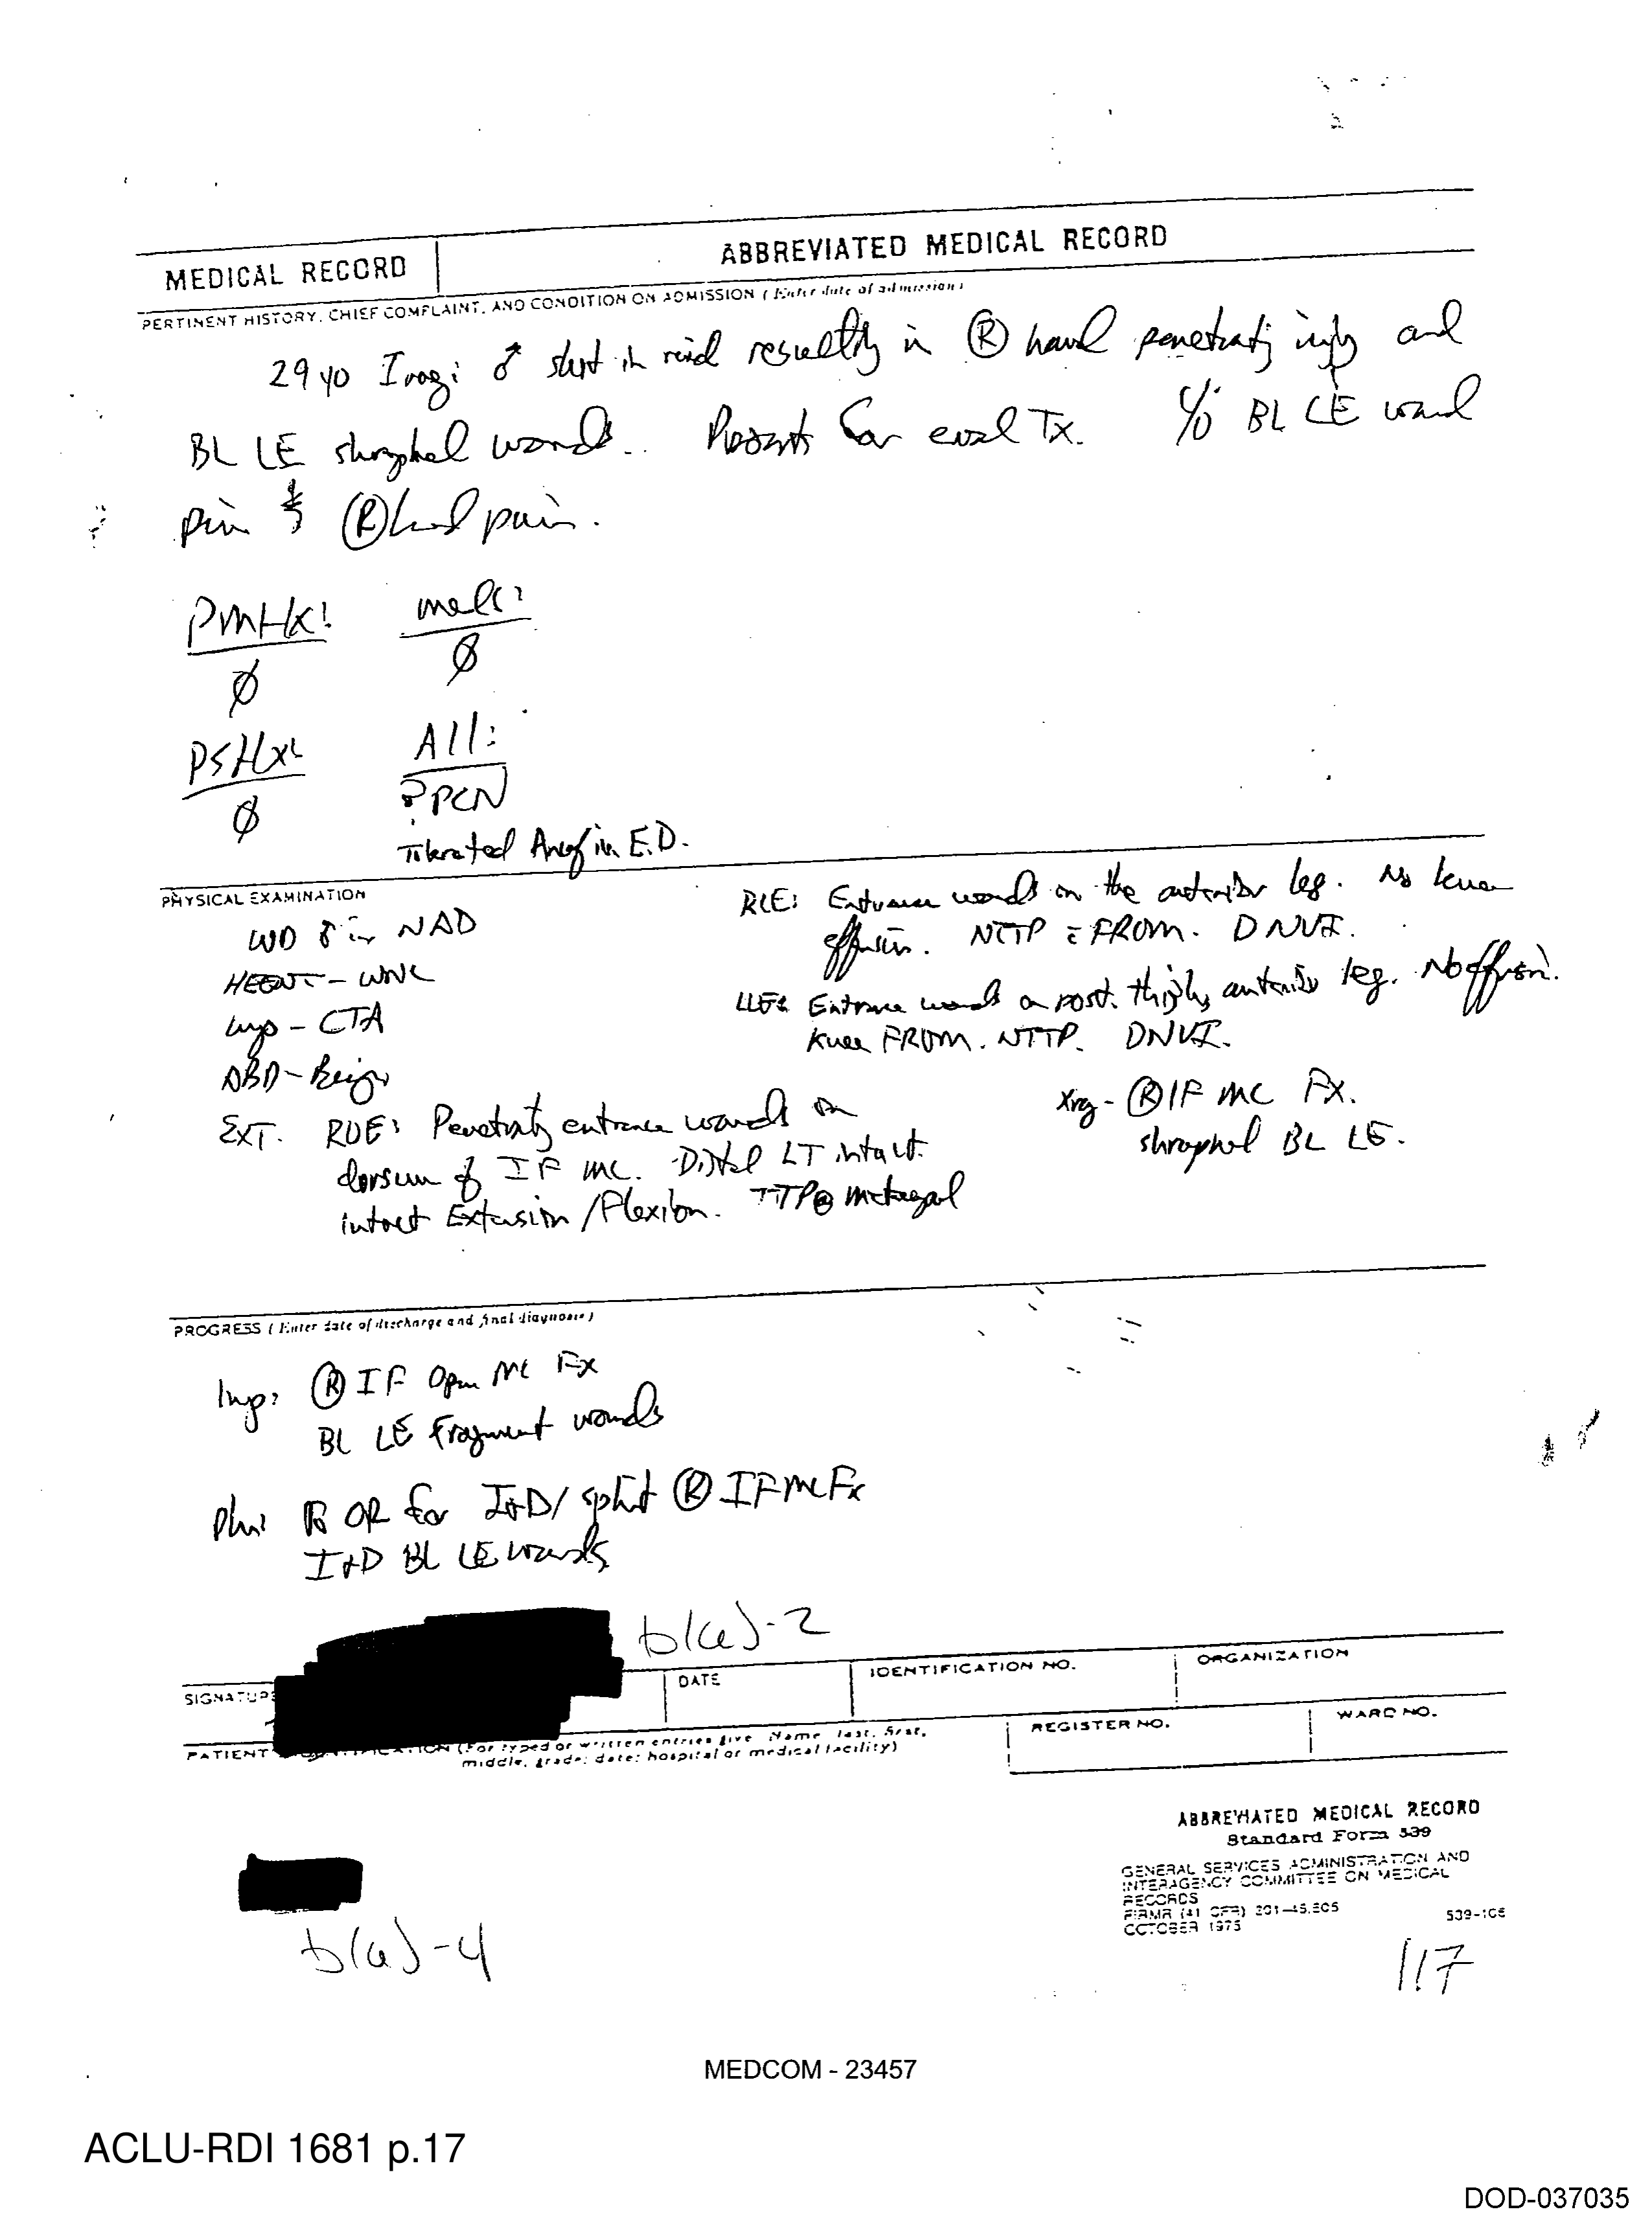 MEDICAL RECORD
ABBREVIATED MEDICAL RECORD
PERTINENT HISTORY, CHIEF COMPLAINT, AND CONDITION ON ADMISSION (Enter date of admission)
29 yo Iraqi ♂ shot in raid resulting in Ⓡ hand penetrating injury and
BL LE shraphel wounds. Presents for eval Tx. c/o BL LE wound
pain & Ⓡ hand pain.
PMHx: meds:
Ø Ø
PSHx: All:
Ø ? PCN
Tolerated Ancef in E.D.
PHYSICAL EXAMINATION
WD ♂ in NAD
HEENT - WNL
lungs - CTA
ABD - Benign
EXT. RUE: Penetrating entrance wounds on
dorsum of IF MC. Distal LT intact.
intact Extension/Flexion. TTP@ metacarpal
RLE: Entrance wounds on the anterior leg. No knee
effusion. NTTP c FROM. DNVI.
LLE: Entrance wounds on post. thigh, anterior leg. No effusion.
Knee FROM. NTTP. DNVI.
Xray - Ⓡ IF MC Fx.
shraphel BL LE.
PROGRESS (Enter date of discharge and final diagnosis)
Imp: Ⓡ IF Open MC Fx
BL LE Fragment wounds
Plan: To OR for I+D/ splint Ⓡ IF MC Fx
I+D BL LE wounds
b(6)-2
SIGNATURE
DATE
IDENTIFICATION NO.
ORGANIZATION
PATIENT'S IDENTIFICATION (For typed or written entries give Name last, first,
middle, grade; date; hospital or medical facility)
REGISTER NO.
WARD NO.
ABBREVIATED MEDICAL RECORD
Standard Form 539
GENERAL SERVICES ADMINISTRATION AND
INTERAGENCY COMMITTEE ON MEDICAL
RECORDS
FIRMR (41 CFR) 201-45.505
OCTOBER 1975 539-105
b(6)-4
117
MEDCOM - 23457
ACLU-RDI 1681 p.17
DOD-037035